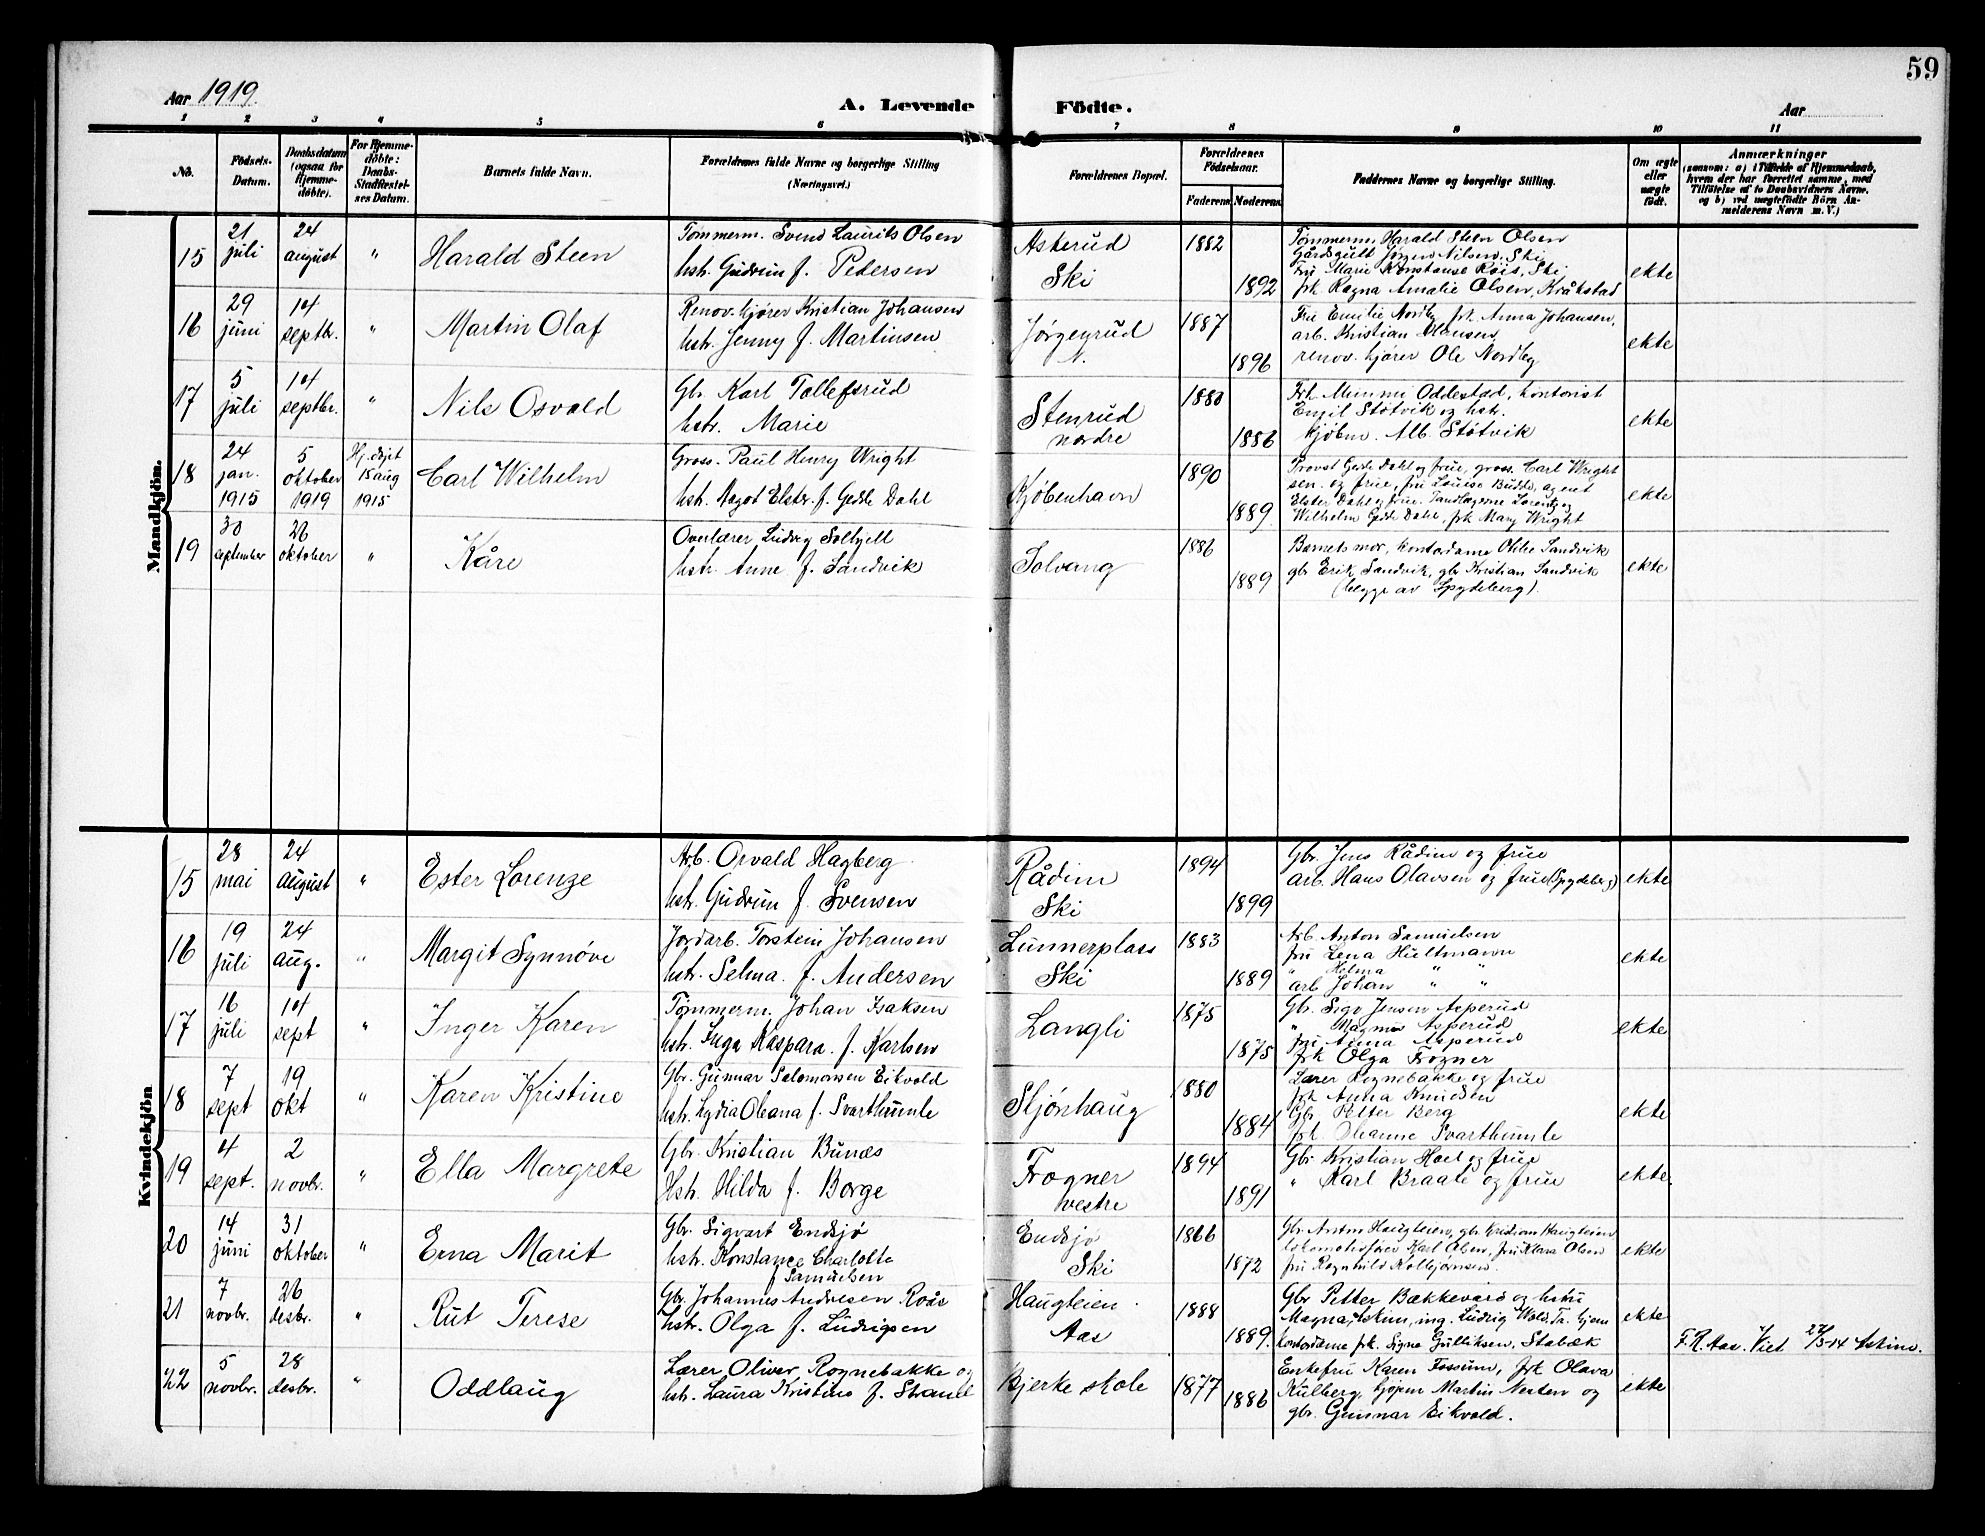 59
Aar 1919.
A. Levende Födte.
Aar
1 2 3 4 5 6 7 8 9 10 11
No.
Födsels-
Datum.
Daabsdatum
(ogsaa for
Hjemme-
döbte).
For Hjemme-
döbte:
Daabs-
Stadfæstel-
ses Datum.
Barnets fulde Navn.
Forældrenes fulde Navne og borgerlige Stilling
(Næringsvei.)
Forældrenes Bopæl.
Forældrenes
Födselsaar.
Faderens Moderens
Faddernes Navne og borgerlige Stilling.
Om ægte
eller
uægte
født.
Anmærkninger
(saasom: a) i Tilfælde af Hjemmedaab,
hvem der har forrettet samme, med
Tilföielse af to Daabsvidners Navne,
og b) ved uægtefödte Börn An-
melderens Navn m. V.)
Mandkjön.
15
21 juli
24 august
"
Harald Steen
Tømmerm. Svend Laurits Olsen
hstr. Gudrun f. Petersen
Askerud
Ski
1882
1892
Tømmerm. Harald Steen Olsen
Gårdsgutt Jørgen Nilsen, Ski
Fru Marie Konstanse Røis, Ski
frk Ragna Amalie Olsen, Kråkstad
ekte
16
29 juni
14 septbr.
"
Martin Olaf
Renov. kjører Kristian Johansen
hstr. Jenny f. Martinsen
Jørgenrud
N.
1887
1896
Fru Emilie Nordby, frk Anna Johansen,
arb. Kristian Hansen,
renov. kjører Ole Nordby
ekte
17
5 juli
14 septbr.
"
Nils Osvald
Gbr. Karl Tollefsrud
hstr. Marie
Stenrud
nordre
1880
1886
Frk Mimmi Oddestad, kontorist
Emil Støtvik og hstr.
kjøbm. Alb. Støtvik
ekte
18
24 jan. 1915
5 oktober 1919
Hj. døpt
15 aug
1915
Carl Wilhelm
Gross. Paul Henry Wright
hstr. Magot Elster f. Gedde Dahl
Kjøbenhavn
1890
1889
Provst Gedde Dahl og frue, gross. Carl Wright
sen. og frue, fru Louise Budde, agent
Elster Dahl og frue. Tandlægerne Lorentz og
Wilhelm Gedde Dahl, frk Mary Wright
ekte
19
30 september
26 oktober
"
Kåre
Overlærer Ludvig Solbjell
hstr. Anne f. Sandvik
Solvang
1886
1889
Barnets mor, kontordame Okke Sandvik
gbr Erik Sandvik, gbr Kristian Sandvik
(begge av Spydeberg).
ekte
Kvindekjön
15
28 mai
24 august
"
Ester Lorenze
Arb. Osvald Hagberg
hstr. Gudrun f. Svensen
Rådim
Ski
1894
1899
Gbr. Jens Rådim og frue
arb. Hans Olavsen og frue (Spydeberg)
ekte
16
19 juli
24 aug.
"
Margit Synnøve
Jordarb. Torstein Johansen
hstr. Selma f. Andersen
Lunnerplass
Ski
1883
1889
Arb Anton Samuelsen
fru Lena Hultmann
" Hilma " "
arb Johan " "
ekte
17
16 juli
14 sept
"
Inger Karen
Tømmerm. Johan Isaksen
hstr. Inga Kaspara f. Karlsen
Langli
1875
1875
Gbr. Sigv Jensen Asperud
" Magnus Asperud
Fru Anna Asperud
frk Olga Frogner
ekte
18
7 sept
19 okt
"
Karen Kristine
Gbr. Gunnar Salomonsen Eikvold
hstr. Lydia Oleana f. Svarthumle
Stjønhaug
1880
1884
Lærer Rognebakke og frue
frk Anna Knudsen
Gbr. Petter Berg
frk Johanne Svarthumle
ekte
19
4 sept.
2 novbr.
"
Ella Margrete
Gbr. Kristian Bunæs
Hstr. Hilda f. Borge
Frogner
vestre
1894
1891
Gbr Kristian Hoel og frue
" Karl Braate og frue
ekte
20
14 juni
31 oktober
"
Erna Marit
Gbr. Sigvart Endsjø
hstr. Konstance Charlotte
f Samuelsen
Endsjø
Ski
1866
1872
Gbr. Anton Haugteien, gbr. Kristian Haugteien
lokomotivfører Karl Olsen, fru Klara Olsen
fru Ragnhild Kolbjørnsen.
ekte
21
7 novbr.
26 desbr.
"
Rut Terese
Gbr. Johannes Andresen Roås
hstr. Olga f. Ludvigsen
Haugteien
Aas
1888
1889
Gbr Petter Bækkevard og hstru
Magna, Askim, ing. Ludvig Wold, Tr. hjem
kontordame frk. Signe Gulliksen, Stabæk
ekte
F. R. Aas. Viet 27/3-14 Askim.
22
5 novbr.
28 desbr.
"
Oddlaug
Lærer Oliver Rognebakke og
hstr. Laura Kristine f. Strand
Bjerke skole
1877
1886
Enkefru Karen Fossum, frk Olava
Kulberg, kjøpm Martin Nesten og
gbr. Gunnar Eikvold.
ekte